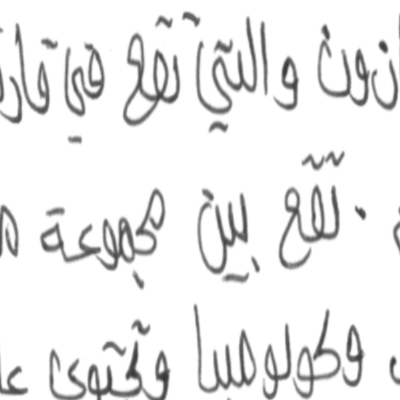 والتي تقع في قار
. تقع بين مجموعة
وكولومبيا وتحتوى